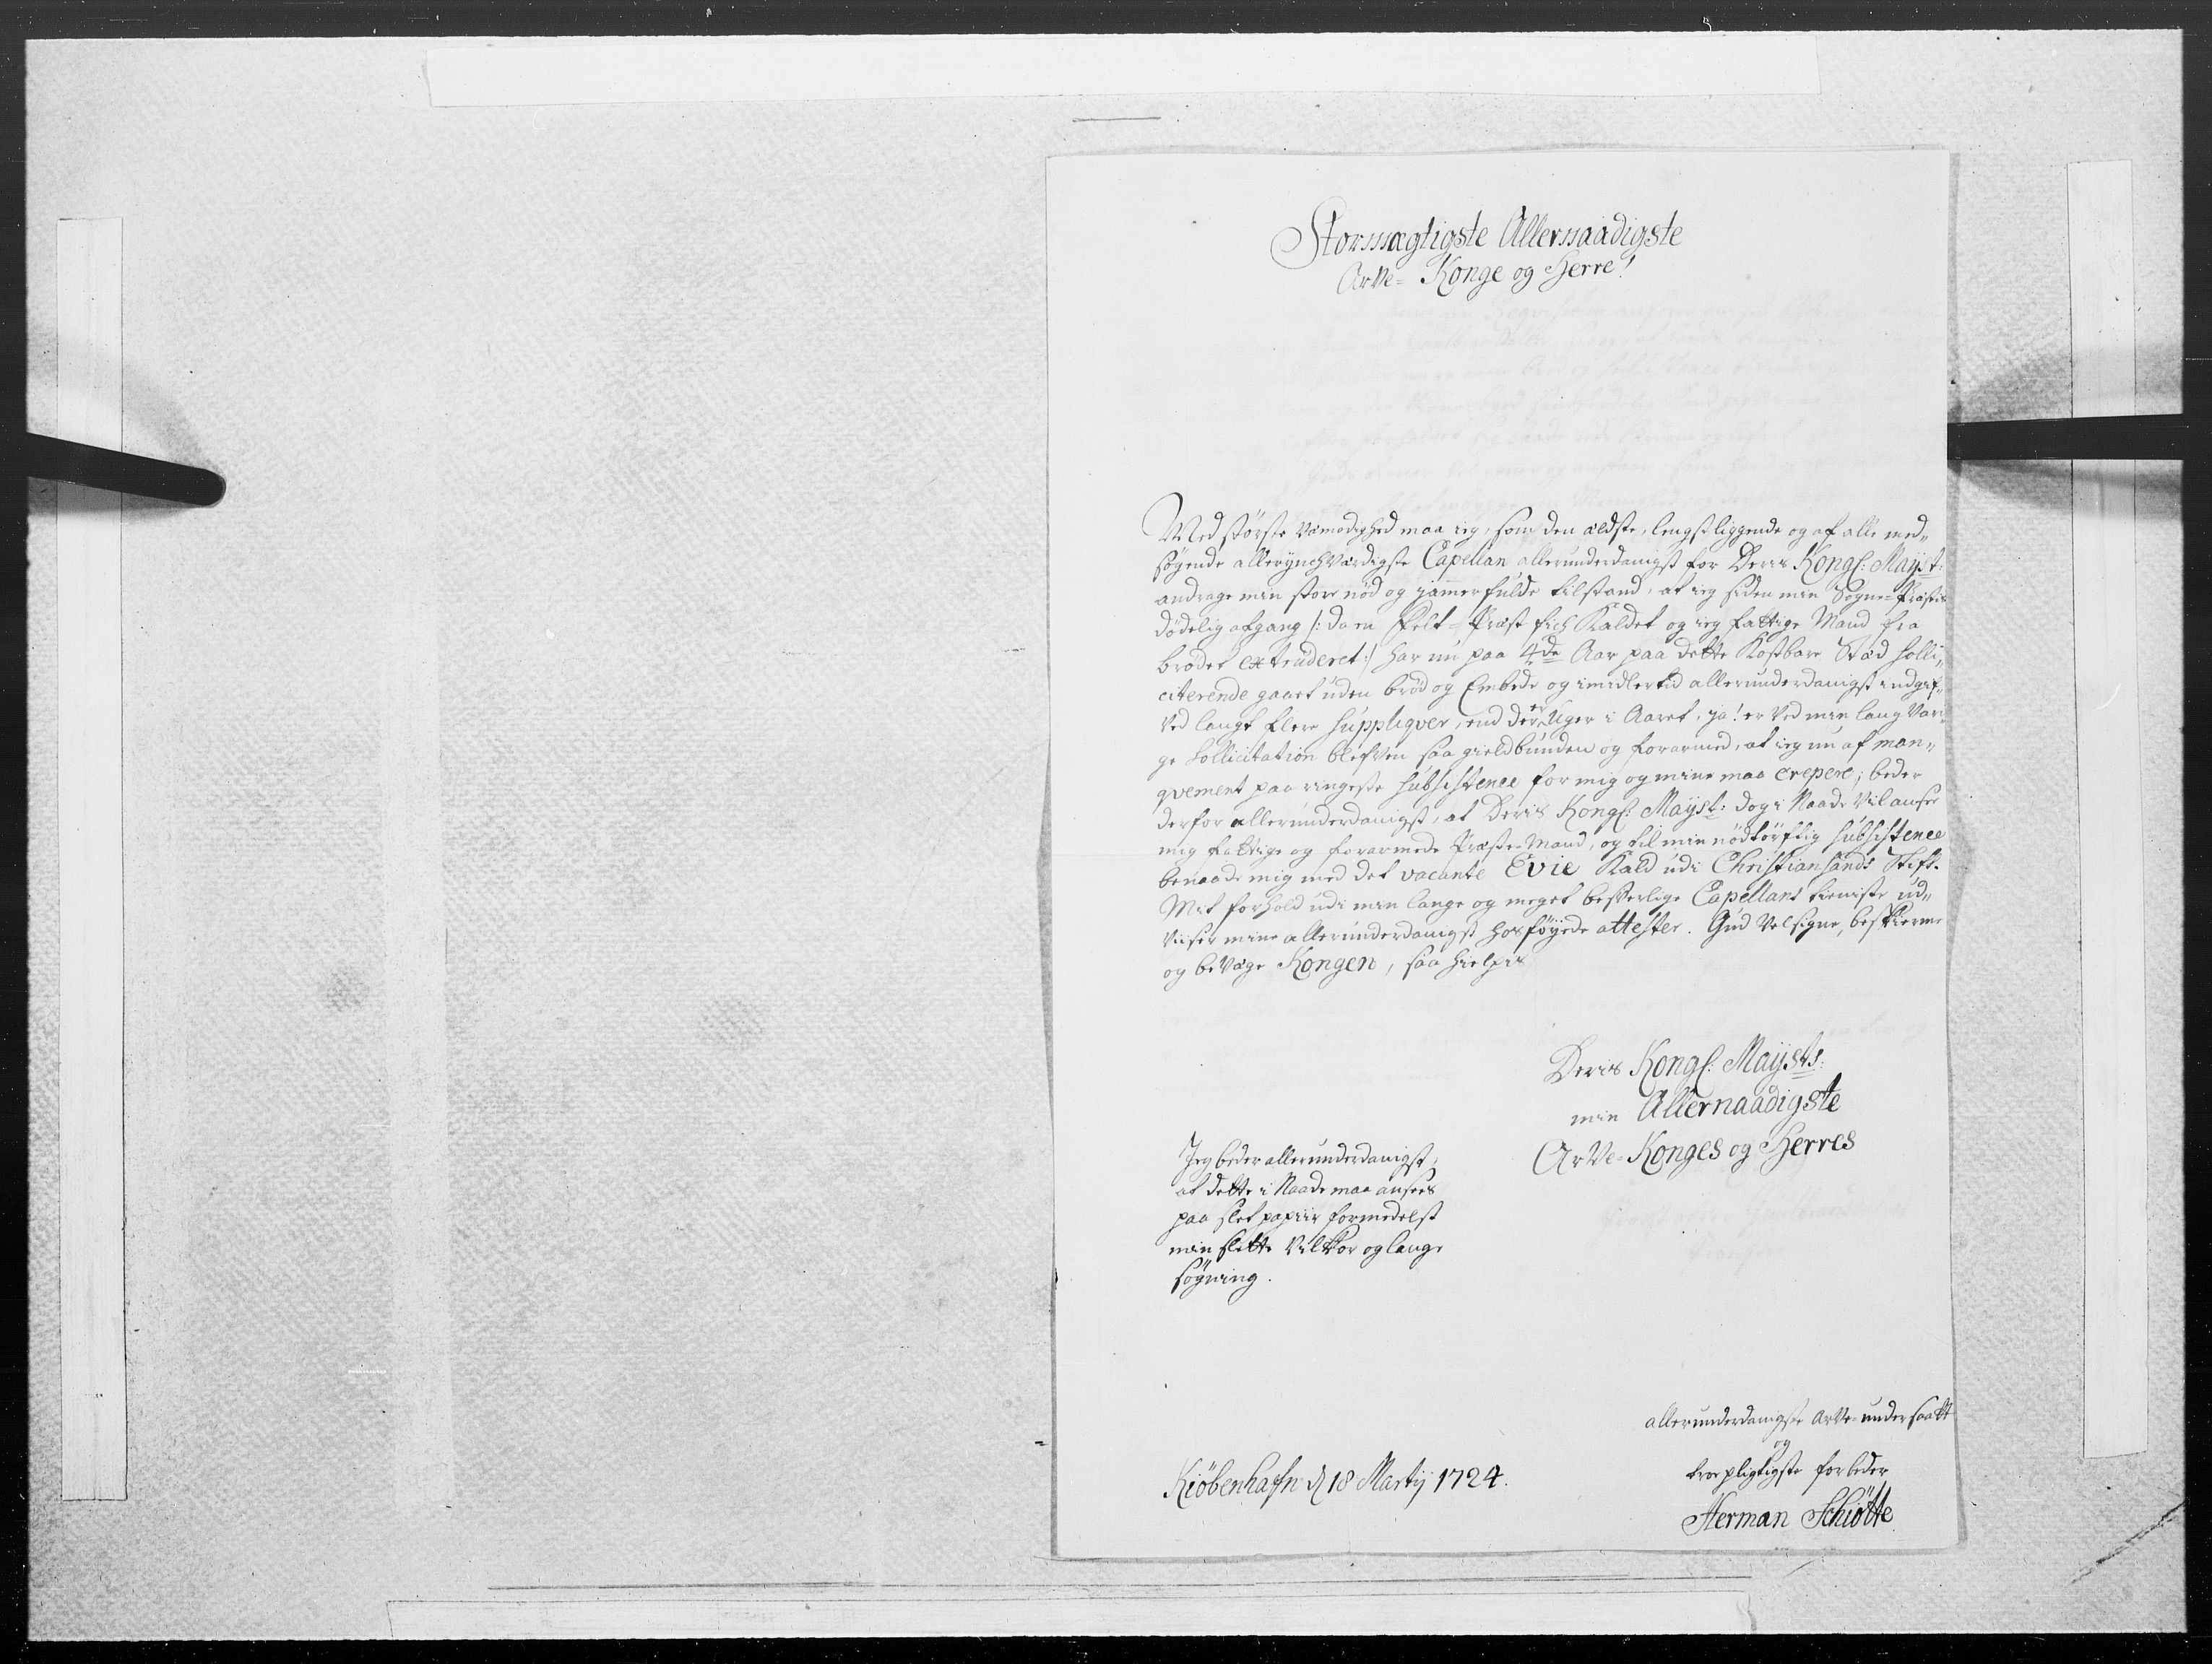 Stormægtigste Allernaadigste
Arve-Konge og Herre!
Med största Vemodighed maa ieg, som den ældste, lengst liggende og af alle med„
søgende allerynchværdigste Capellan allerunderdanigst for Deris Kongl: Mayst:
andrage min store nød og jamerfulde tilstand, at ieg siden min Sogne-Præstes
dødelig afgang /: da en Felt-Præst fich Kaldet og ieg fattige Mand fra
brødet extruderet :/ har nu paa 4de Aar paa dette Kostbare Stæd solli„
citerende gaaet uden brød og Embede og imidlertid allerunderdanigst indgif„
ved langt flere suppliqver, end der er Uger i Aaret, ja! er ved min lang Vari„
ge Sollicitation blefven saa gieldbunden og forarmed, at ieg nu af man„
qvement paa ringeste subsistence for mig og mine maa crepere; beder
derfor allerunderdanigst, at Deris Kongl: Mayst: dog i Naade Vil ansee
mig fattige og forarmede Præste-Mand, og til min nødtørftig subsistence
benaade mig med det vacante Evie Kald udi Christiansands Stift.
Mit forhold udi min lange og meget besverlige Capellans tieniste ud„
viiser mine allerunderdanigst hosføyede attester. Gud Velsigne, beskierme
og bevage Kongen, saa hielpis
Deris Kongl: Maysts:
min Allernaadigste
Arve-Konges og Herres
Jeg beder allerunderdanigst,
at dette i Naade maa ansees
paa slet papiir formedelst
min slette Vilkor og lange
søgning.
allerunderdanigste Arve-undersaatt
og
troepligtigste forbeder
Kiöbenhafn d 18 Martij 1724.
Herman Schiötte